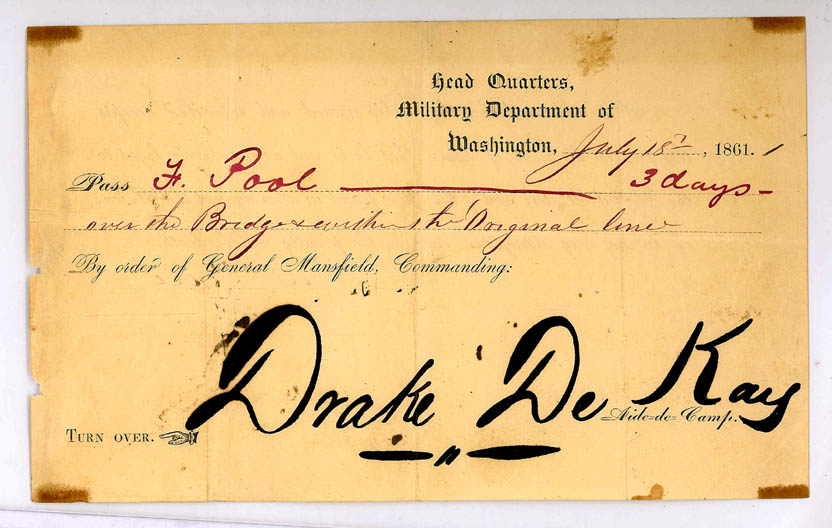 Head Quarters,
Military Department of
Washington, July 18th, 1861.
Pass F. Pool 3 days -
over the Bridge & within the Original line
By order of General Mansfield, Commanding:
Drake De Kay
Aide=de=Camp.
TURN OVER.